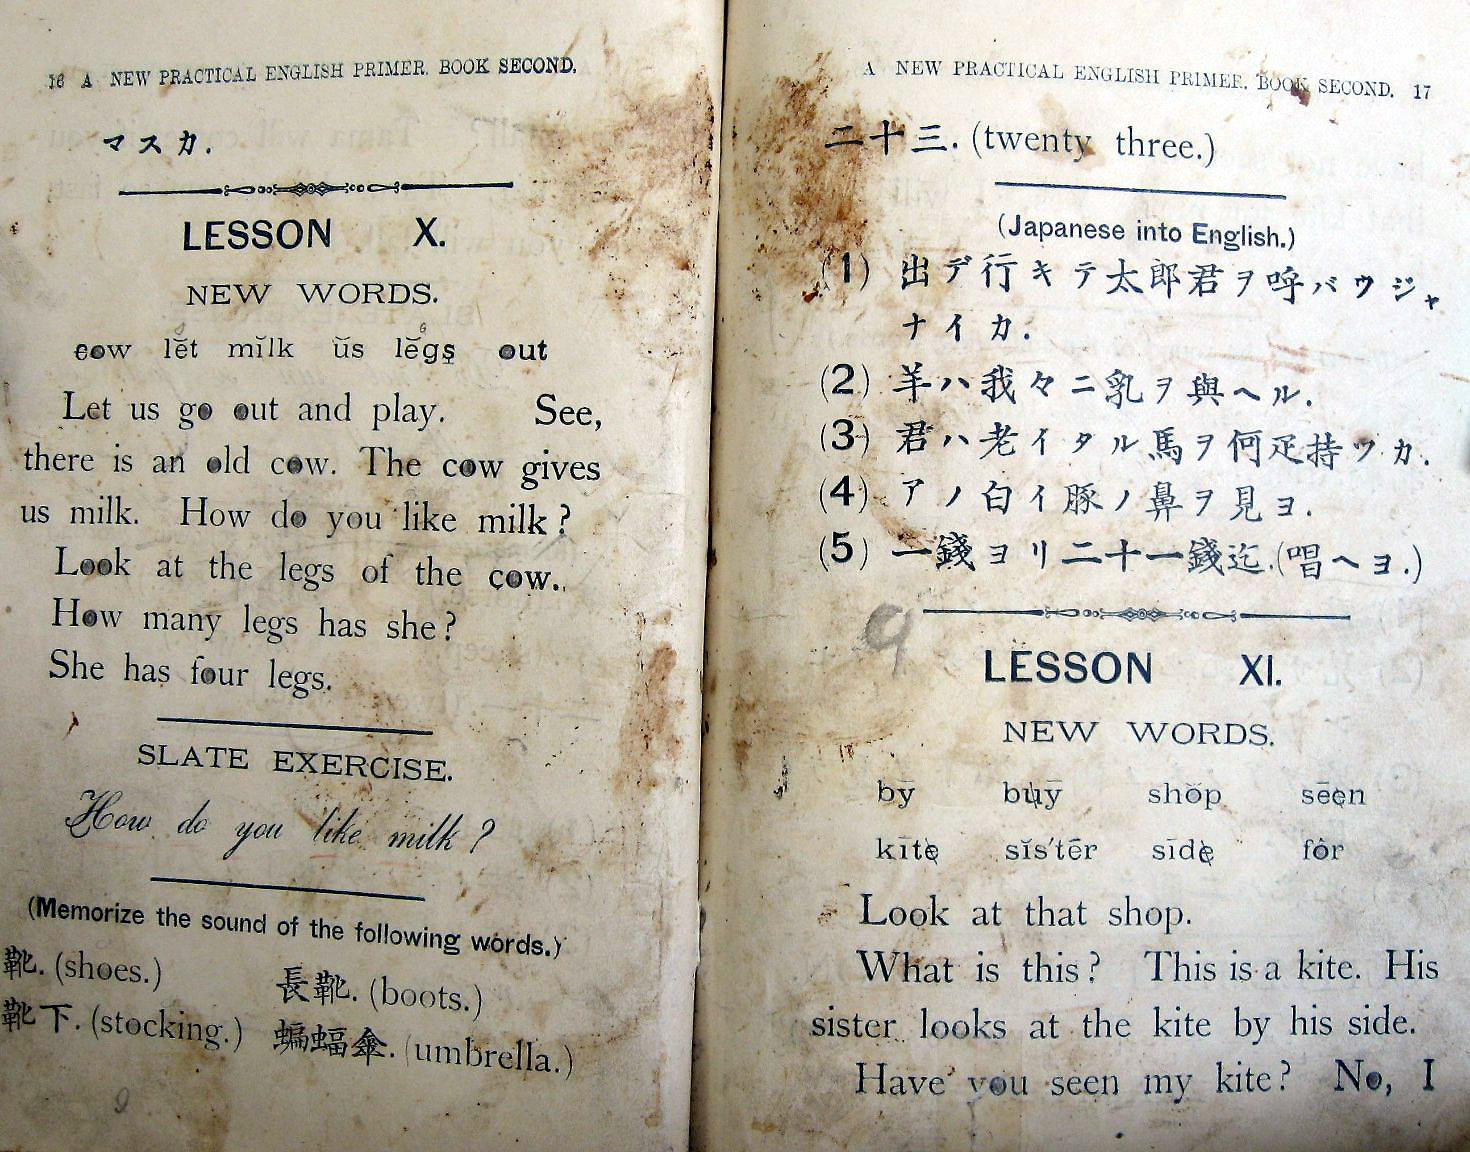 16 A NEW PRACTICAL ENGLISH PRIMER. BOOK SECOND.
マスカ.
LESSON X.
NEW WORDS.
cow lĕt mĭlk ŭs lĕgs out
Let us go out and play. See,
there is an old cow. The cow gives
us milk. How do you like milk?
Look at the legs of the cow.
How many legs has she?
She has four legs.
SLATE EXERCISE.
How do you like milk?
(Memorize the sound of the following words.)
靴. (shoes.) 長靴. (boots.)
靴下. (stocking.) 蝙蝠傘. (umbrella.)
9
A NEW PRACTICAL ENGLISH PRIMER. BOOK SECOND. 17
二十三. (twenty three.)
(Japanese into English.)
(1) 出デ行キテ太郎君ヲ呼バウジャ
ナイカ.
(2) 羊ハ我々ニ乳ヲ與ヘル.
(3) 君ハ老イタル馬ヲ何疋持ツカ.
(4) アノ白イ豚ノ鼻ヲ見ヨ.
(5) 一錢ヨリ二十一錢迄.(唱ヘヨ.)
9
LESSON XI.
NEW WORDS.
bȳ buȳ shŏp sēen
kīte sĭs'tẽr sīde fôr
Look at that shop.
What is this? This is a kite. His
sister looks at the kite by his side.
Have you seen my kite? No, I